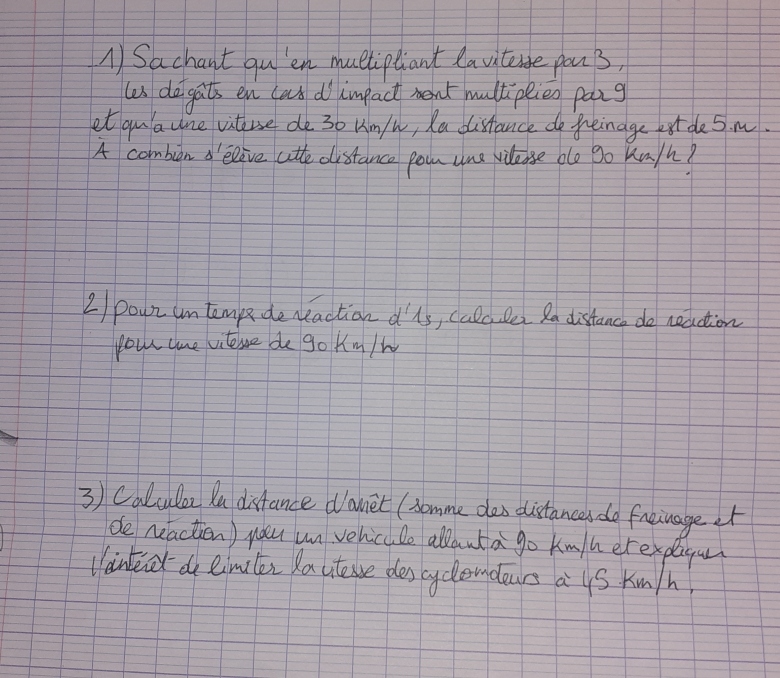 1) Sachant qu'en multipliant la vitesse par 3,
les dégâts en cas d'impact sont multipliés par 9
et qu'a une vitesse de 30 km/h, la distance de freinage est de 5 m.
À combien s'élève cette distance pour une vitesse de 90 km/h?
2) pour un temps de réaction d'1s, calculer la distance de réaction
pour une vitesse de 90 Km/h
3) Calculer la distance d'arrêt (somme des distances de freinage et
de réaction) pour un vehicule allant à 90 Km/h et expliquer
l'intérêt de limiter la vitesse des cyclomoteurs à 45 km/h.